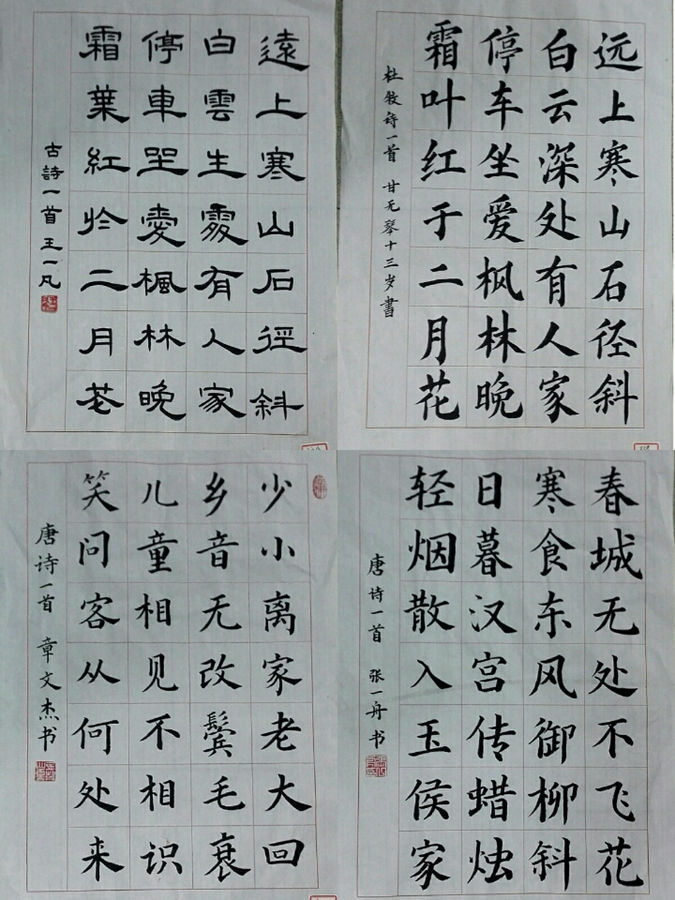 遠上寒山石徑斜
白雲生處有人家
停車坐愛楓林晚
霜葉紅於二月花
古詩一首 王一凡
远上寒山石径斜
白云深处有人家
停车坐爱枫林晚
霜叶红于二月花
杜牧诗一首 甘无琴十三岁書
少小离家老大回
乡音无改鬓毛衰
儿童相见不相识
笑问客从何处来
唐诗一首 章文杰书
春城无处不飞花
寒食东风御柳斜
日暮汉宫传蜡烛
轻烟散入玉侯家
唐诗一首 张一舟书